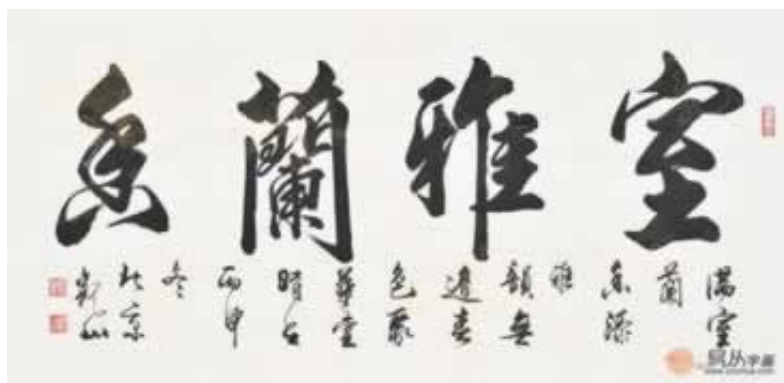 室雅蘭香
滿室
蘭
香添
雅
韻無
邊春
色聚
華堂
晴云
丙申
冬
於京
易从字畫